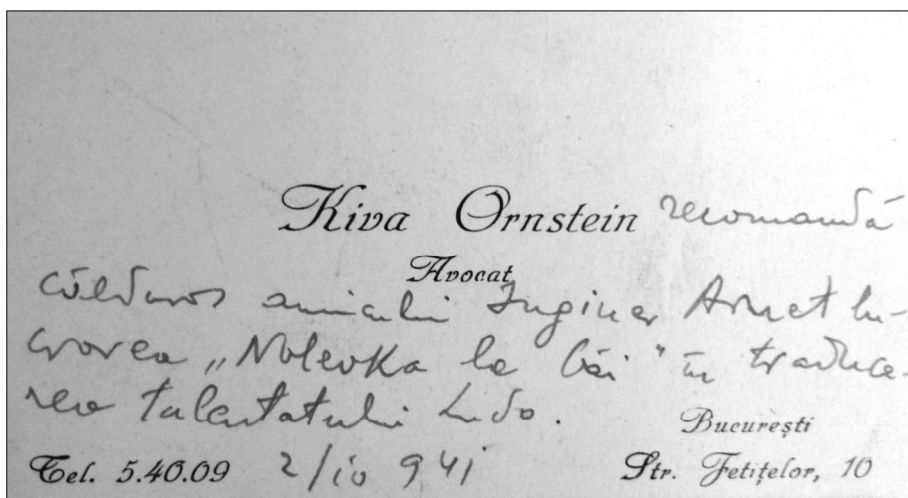 Kiva Ornstein recomandă
Avocat
călduros amicului Inginer Arnet lu-
crarea „Nalevka la băi" în traduce-
rea talentatului Ludo.
București
Tel. 5.40.09 2/io 941 Str. Fetițelor, 10